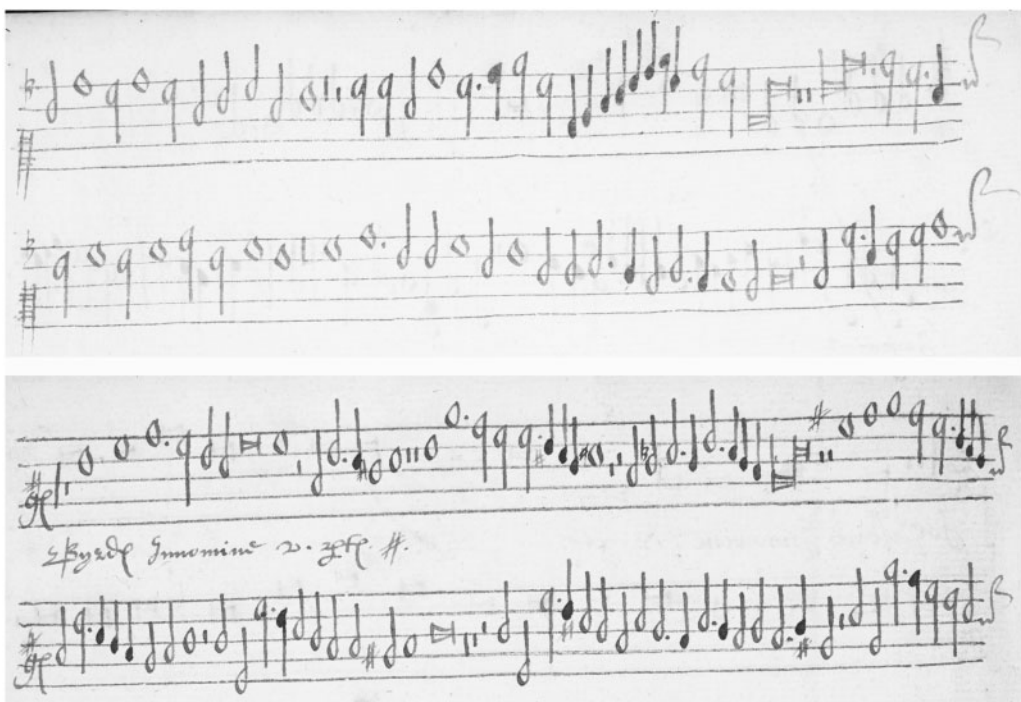 Byrd Innomine v. pts. #.